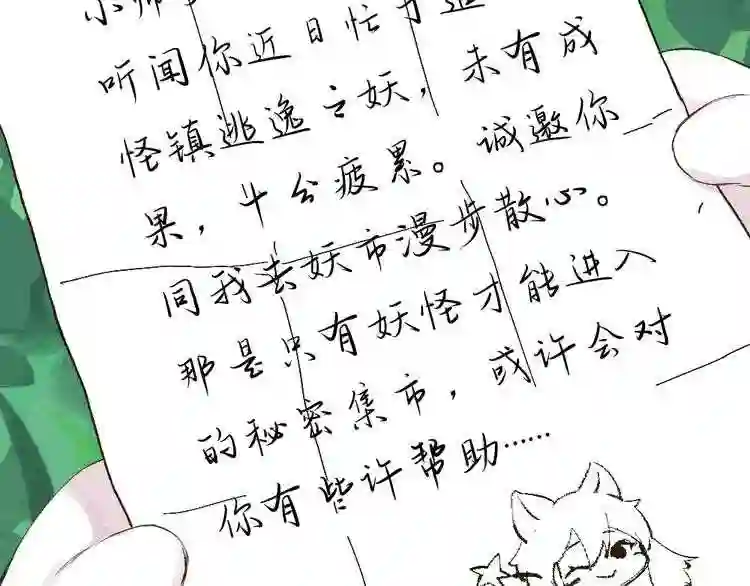 听闻你近日忙于追
怪镇逃逸之妖，未有成
果，十分疲累。诚邀你
同我去妖市漫步散心。
那是只有妖怪才能进入
的秘密集市，或许会对
你有些许帮助……